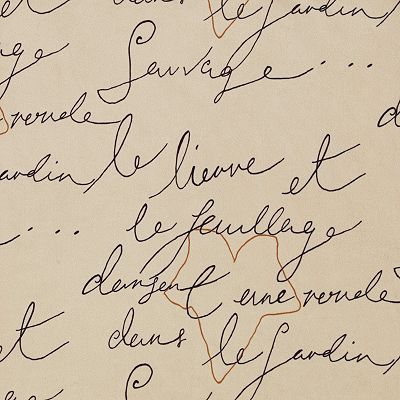 et dans le jardin
Sauvage ...
une ronde
jardin le lierre et
... le feuillage
dansent une ronde
et dans le jardin